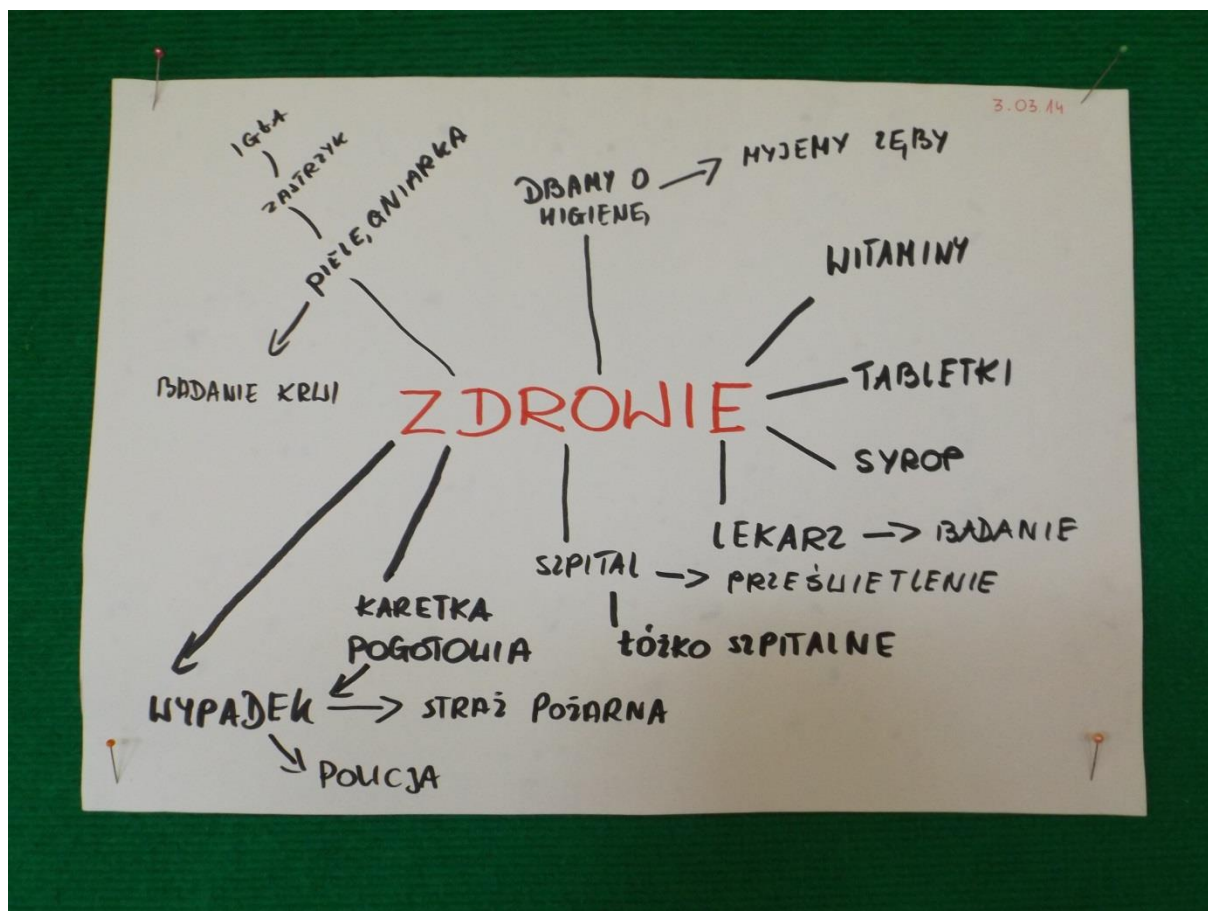 3.03.14
IGŁA
ZASTRZYK
PIELĘGNIARKA
BADANIE KRWI
DBAMY O
HIGIENĘ
MYJEMY ZĘBY
WITAMINY
TABLETKI
SYROP
ZDROWIE
LEKARZ → BADANIE
SZPITAL → PRZEŚWIETLENIE
ŁÓŻKO SZPITALNE
KARETKA
POGOTOWIA
WYPADEK → STRAŻ POŻARNA
POLICJA